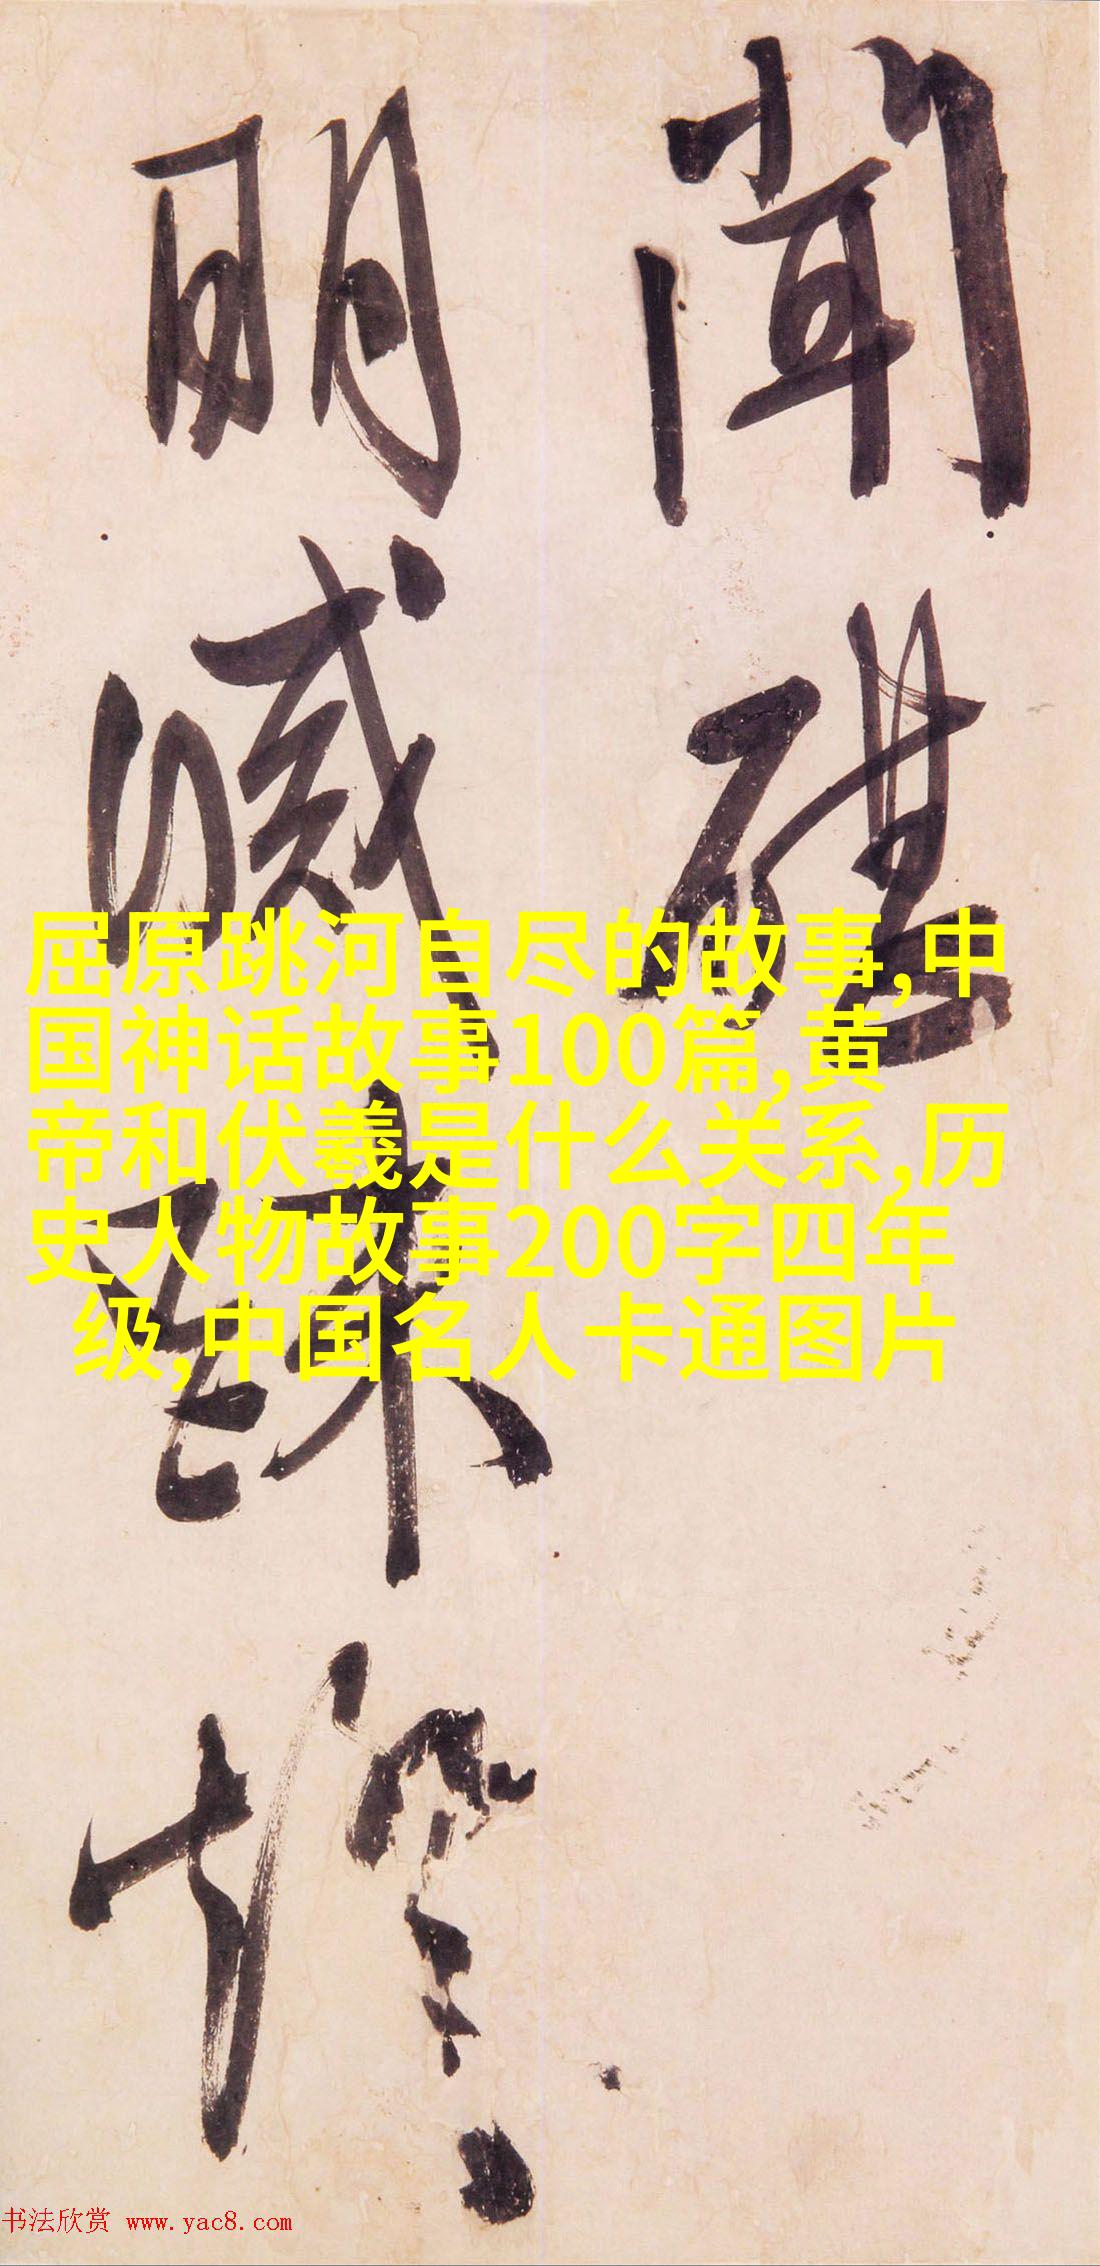 聞
明
屈原跳河自尽的故事,中
国神话故事100篇,黄
帝和伏羲是什么关系,历
史人物故事200字四年
级,中国名人卡通图片
书法欣赏 www.yac8.com